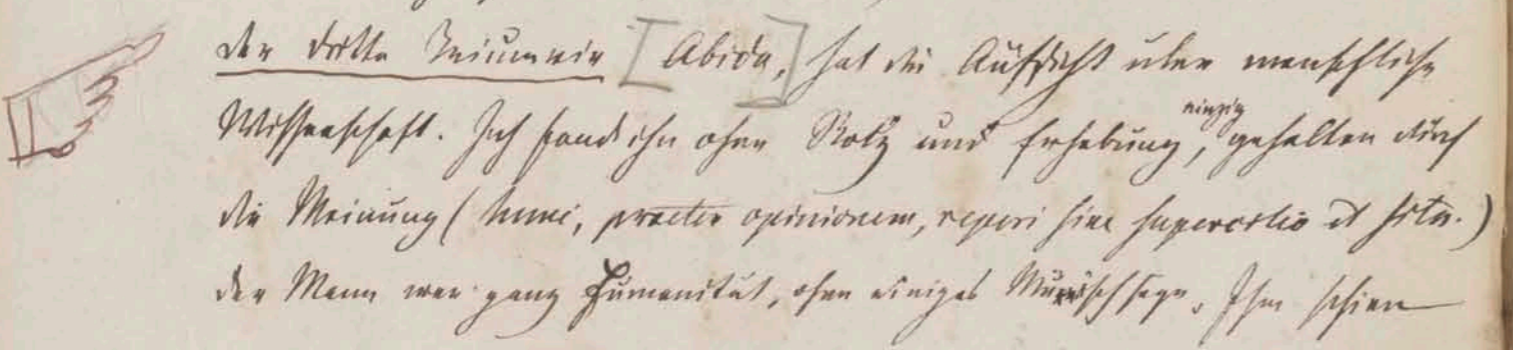 der dritte Triumvir [Abida,] hat die Aufsicht uber menschliche
Wissenschaft. Ich fand ihn ohne Stolz und Erhebung, einzig gehalten durch
die Meinung (hunc, praeter opinionem, reperi sine supercilio et situ.)
der Mann war ganz Humanität, ohne einiges Mürrischseyn. Ihm schien